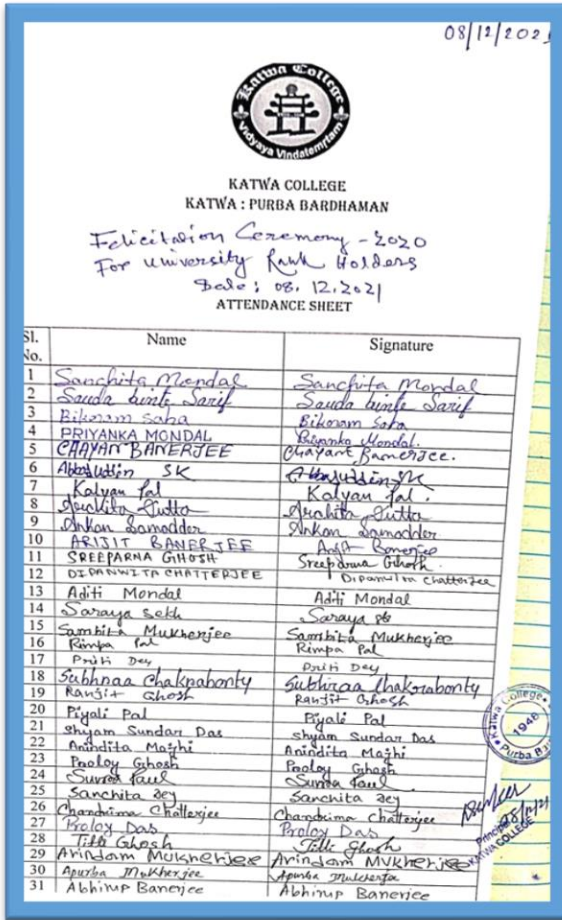 08/12/202
Katwa College
Vidyaya Vindatemrtam
KATWA COLLEGE
KATWA : PURBA BARDHAMAN
Felicitation Ceremony - 2020
For University Rank Holders
Date : 08.12.2021
ATTENDANCE SHEET
Sl. No. Name Signature
1 Sanchita Mondal Sanchita Mondal
2 Sauda binte Sarif Sauda binte Sarif
3 Bikoram Saha Bikoram Saha
4 PRIYANKA MONDAL Priyanka Mondal.
5 CHAYAN BANERJEE Chayan Banerjee.
6 Abbasuddin SK Abbasuddin SK
7 Kalyan Pal Kalyan Pal.
8 Archita Dutta Archita Dutta
9 Ankan Samadder Ankan Samadder
10 ARIJIT BANERJEE Arijit Banerjee
11 SREEPARNA GHOSH Sreeparna Ghosh
12 DIPANWITA CHATTERJEE Dipanwita Chatterjee
13 Aditi Mondal Aditi Mondal
14 Saraya Sekh Saraya
15 Sambita Mukherjee Sambita Mukherjee
16 Rimpa Pal Rimpa Pal
17 Priti Dey Priti Dey
18 Subhraa Chakraborty Subhraa Chakraborty
19 Ranjit Ghosh Ranjit Ghosh
20 Piyali Pal Piyali Pal
21 Shyam Sundar Das Shyam Sundar Das
22 Anindita Majhi Anindita Majhi
23 Proloy Ghosh Proloy Ghosh
24 Paul Paul
25 Sanchita Dey Sanchita Dey
26 Chandrima Chatterjee Chandrima Chatterjee
27 Proloy Das Proloy Das
28 Titli Ghosh Titli Ghosh
29 Arindam Mukherjee Arindam Mukherjee
30 Apurba Mukherjee Apurba Mukherjee
31 Abhirup Banerjee Abhirup Banerjee
Katwa College
1948
Purba Bar
08/12/21
Principal
KATWA COLLEGE